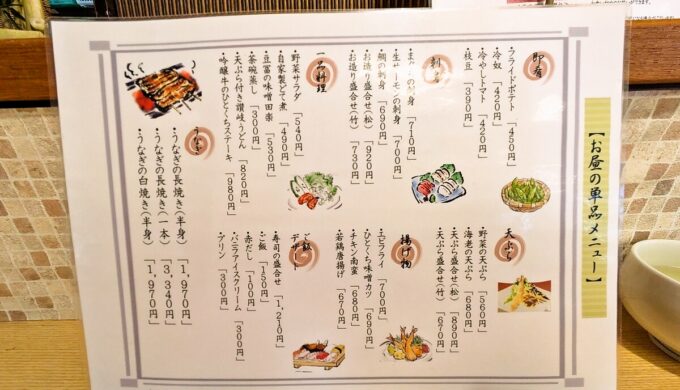 【お昼の単品メニュー】
即肴
・フライドポテト「450円」
・冷奴「420円」
・冷やしトマト「420円」
・枝豆「390円」
刺身
・まぐろの刺身「710円」
・生サーモンの刺身「700円」
・鯛の刺身「690円」
・お造り盛合せ(松)「920円」
・お造り盛合せ(竹)「730円」
一品料理
・野菜サラダ「540円」
・自家製どて煮「490円」
・豆冨の味噌田楽「530円」
・茶碗蒸し「300円」
・天ぷら付き讃岐うどん「820円」
・吟醸牛のひとくちステーキ「980円」
うなぎ
・うなぎの長焼き(半身)「1,970円」
・うなぎの長焼き(一本)「3,340円」
・うなぎの白焼き(半身)「1,970円」
天ぷら
・野菜の天ぷら「560円」
・海老の天ぷら「680円」
・天ぷら盛合せ(松)「890円」
・天ぷら盛合せ(竹)「670円」
揚げ物
・エビフライ「700円」
・ひとくち味噌カツ「690円」
・チキン南蛮「680円」
・若鶏唐揚げ「670円」
ご飯
デザート
・寿司の盛合せ「1,210円」
・ご飯「150円」
・赤だし「100円」
・バニラアイスクリーム「300円」
・プリン「300円」